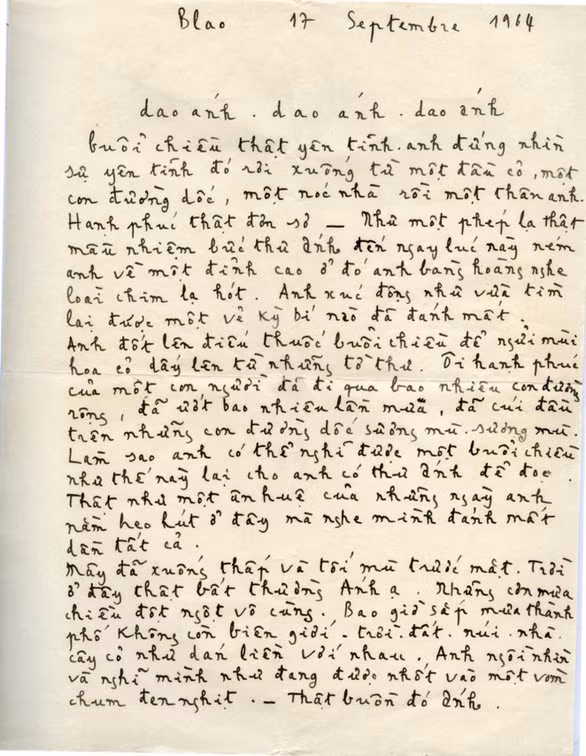 Blao 17 Septembre 1964
dao ánh. dao ánh. dao ánh
buổi chiều thật yên tĩnh. anh đứng nhìn
sự yên tĩnh đó rơi xuống từ một đầu cỏ, một
con đường dốc, một noć nhà rồi một thân anh.
Hạnh phúc thật đơn sơ — Như một phép lạ thật
mầu nhiệm bức thư ánh đến ngay lúc này ném
anh về một đỉnh cao ở đó anh bàng hoàng nghe
loài chim lạ hót. Anh xúc động như vừa tìm
lại được một vẻ kỳ bí nào đã đánh mất.
Anh đốt lên điếu thuốc buổi chiều để ngửi mùi
hoa cỏ dấy lên từ những tờ thư. Ôi hạnh phúc
của một con người đã đi qua bao nhiêu con đường
rộng, đã ướt bao nhiêu lần mưa, đã cúi đầu
trên những con đường dốc sương mù. sương mù.
Làm sao anh có thể nghĩ được một buổi chiều
như thế này lại cho anh có thư ánh để đọc.
Thật như một ân huệ của những ngày anh
nằm heo hút ở đây mà nghe mình đánh mất
dần tất cả.
Mây đã xuống thấp và tối mù trước mặt. Trời
ở đây thật bất thường Ánh ạ. Những cơn mưa
chiều đột ngột vô cùng. Bao giờ sắp mưa thành
phố không còn biên giới. trời. đất. núi. nhà.
cây cỏ như dán liền với nhau. Anh ngồi nhìn
và nghĩ mình như đang được nhốt vào một vòm
chum đen nghịt. — Thật buồn đó ánh.